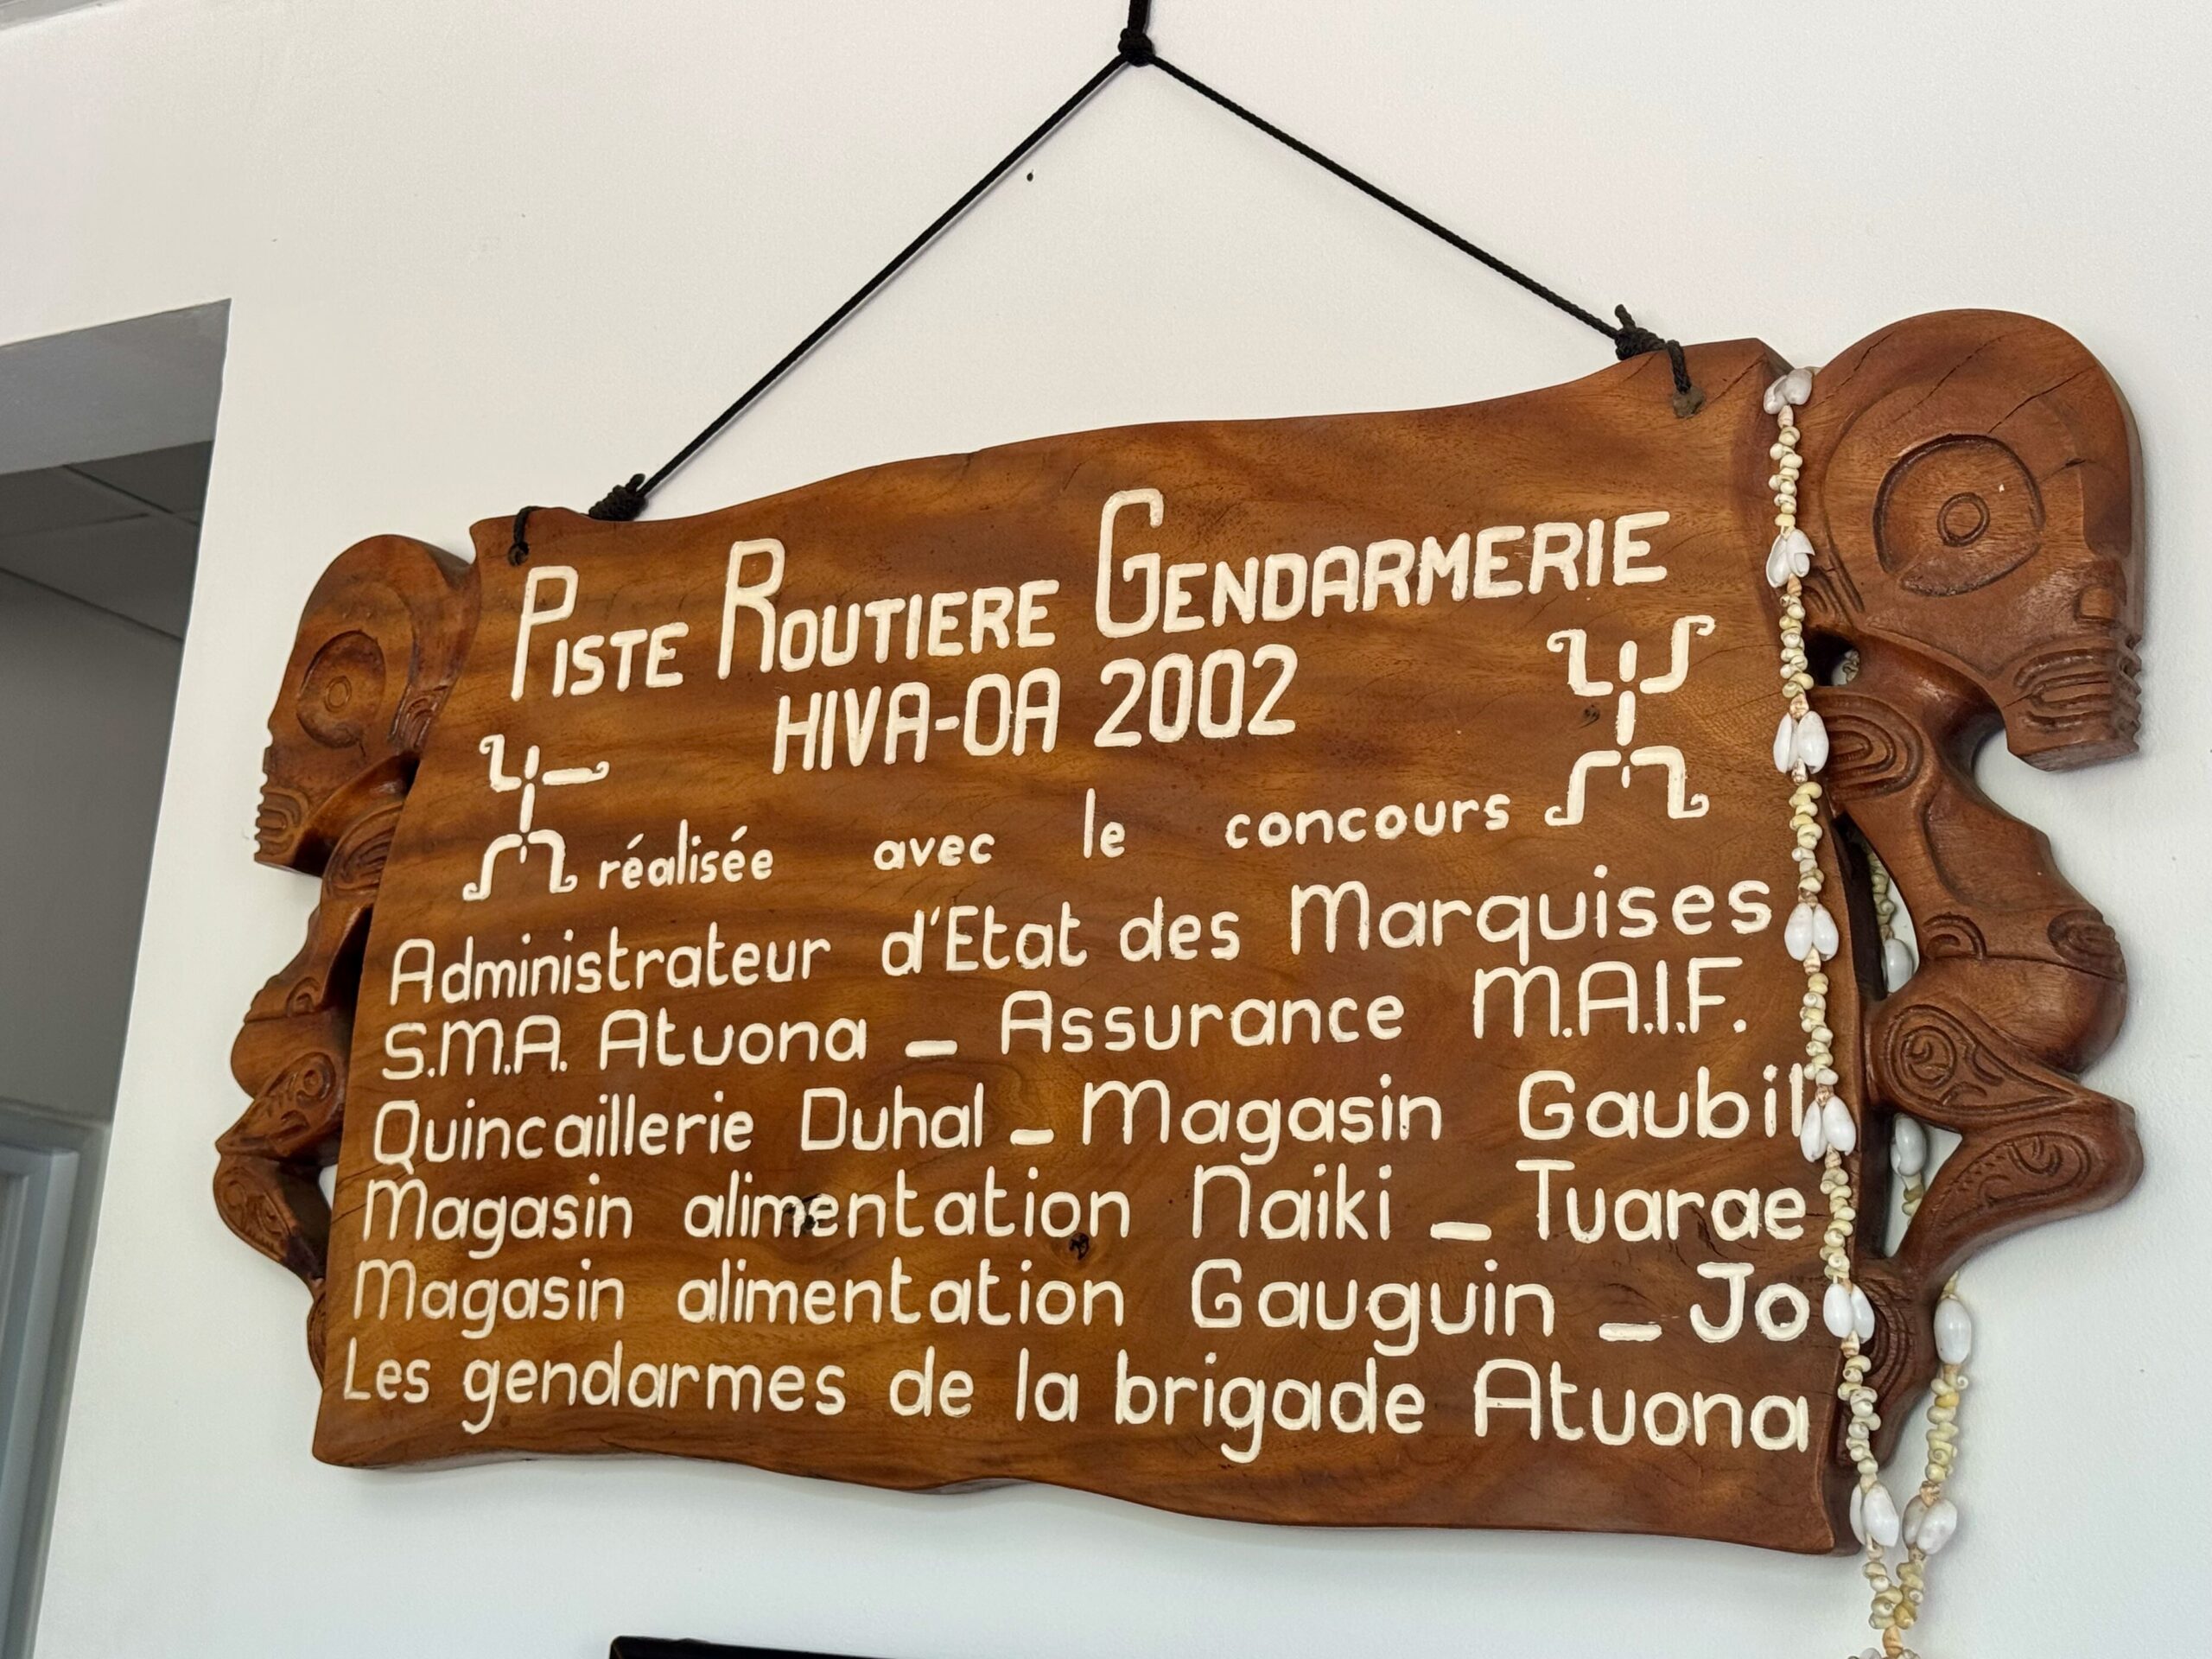 PISTE ROUTIERE GENDARMERIE
HIVA-OA 2002
réalisée avec le concours
Administrateur d'Etat des Marquises
S.M.A. Atuona _ Assurance M.A.I.F.
Quincaillerie Duhal _ Magasin Gaubil
Magasin alimentation Naiki _ Tuarae
Magasin alimentation Gauguin _ Jo
Les gendarmes de la brigade Atuona